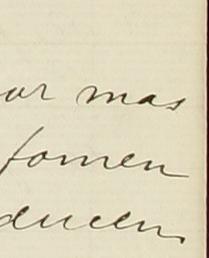 or mas
fomen
ducen